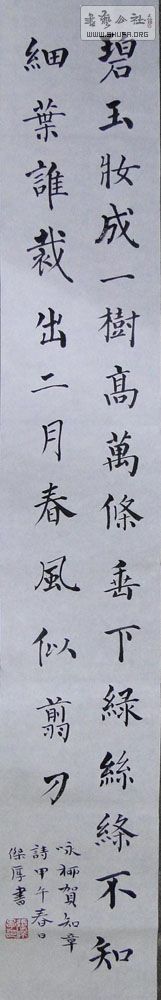 碧玉妝成一樹高萬條垂下緑絲絛不知
細葉誰裁出二月春風似翦刀
咏柳賀知章
詩甲午春日
傑厚書
書艺公社
WWW.SHUFA.ORG